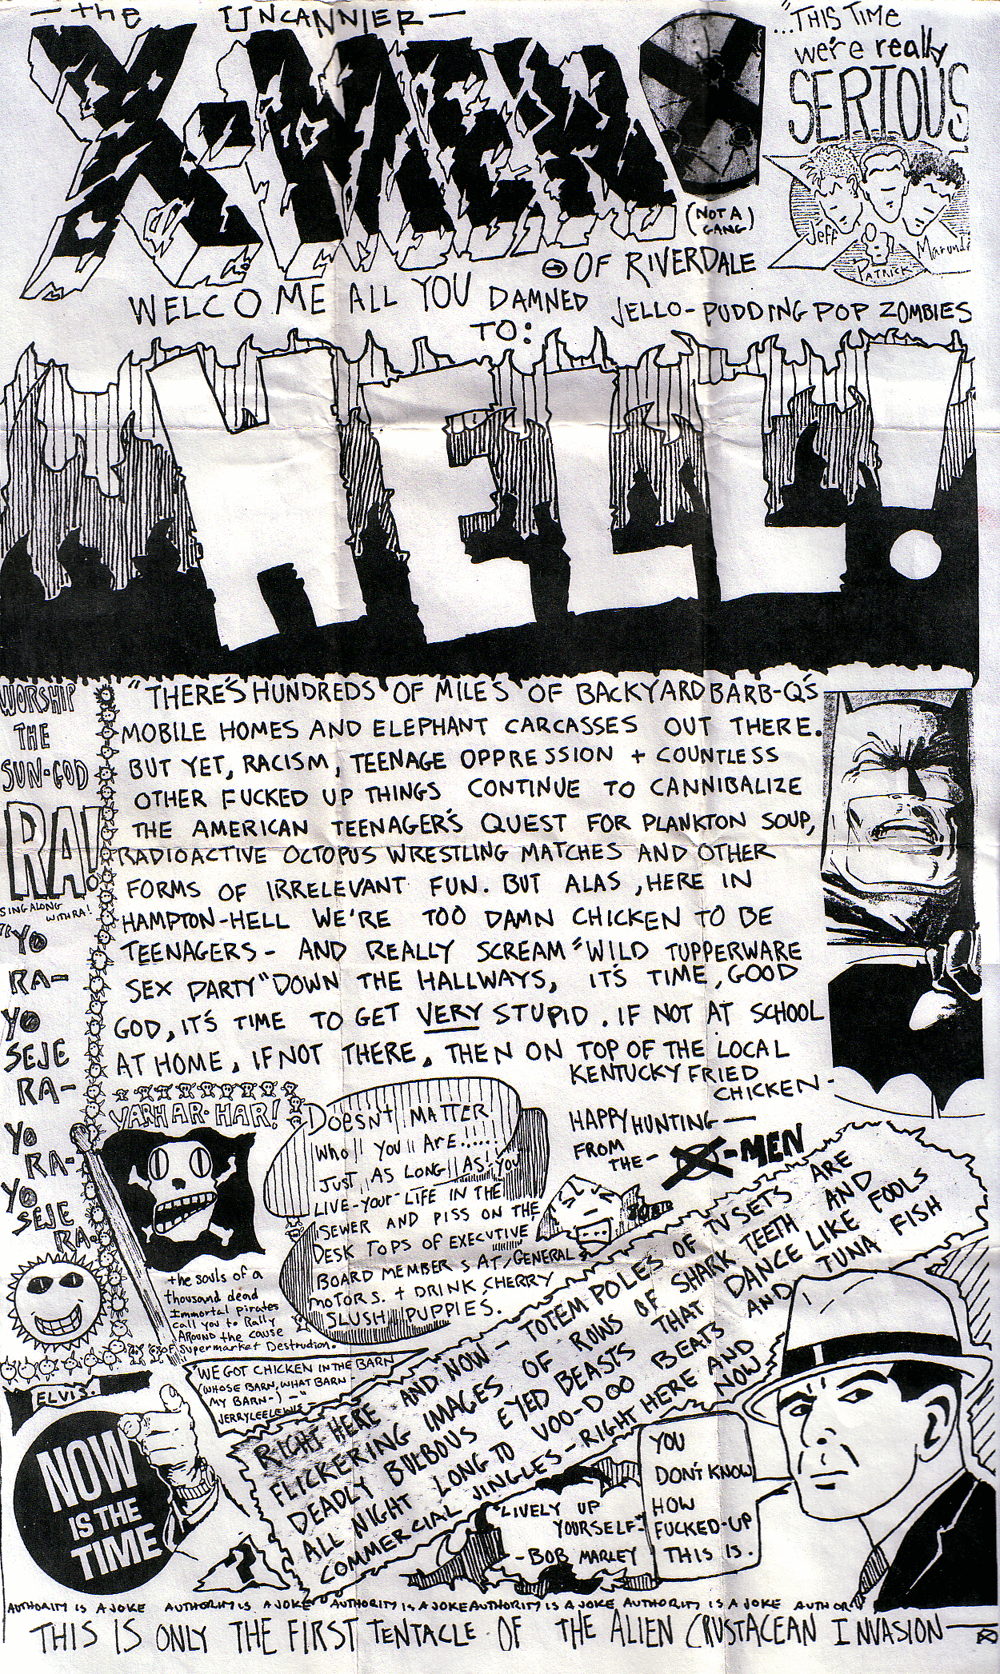 -the UNCANNIER-
X-MEN
(NOT A GANG)
OF RIVERDALE
"...THIS TIME
we're really
SERIOUS
Jeff
PATRICK
WELCOME ALL YOU DAMNED JELLO-PUDDING POP ZOMBIES
TO:
HELL!
WORSHIP
THE
SUN-GOD
RA!
SING ALONG
WITH RA!
"YO
RA-
YO
SEJE
RA-
YO
RA-
YO
SEJE
RA-
"THERE'S HUNDREDS OF MILES OF BACKYARD BARB-Q'S
MOBILE HOMES AND ELEPHANT CARCASSES OUT THERE.
BUT YET, RACISM, TEENAGE OPPRESSION + COUNTLESS
OTHER FUCKED UP THINGS CONTINUE TO CANNIBALIZE
THE AMERICAN TEENAGER'S QUEST FOR PLANKTON SOUP,
RADIOACTIVE OCTOPUS WRESTLING MATCHES AND OTHER
FORMS OF IRRELEVANT FUN. BUT ALAS, HERE IN
HAMPTON-HELL WE'RE TOO DAMN CHICKEN TO BE
TEENAGERS - AND REALLY SCREAM "WILD TUPPERWARE
SEX PARTY" DOWN THE HALLWAYS, IT'S TIME, GOOD
GOD, IT'S TIME TO GET VERY STUPID. IF NOT AT SCHOOL
AT HOME, IF NOT THERE, THEN ON TOP OF THE LOCAL
KENTUCKY FRIED
CHICKEN-
HAPPY HUNTING-
FROM
THE- X-MEN
YARH AR-HAR!
the souls of a
thousand dead
Immortal Pirates
call you to Rally
Around the cause
of Supermarket Destrudion.
DOESN'T MATTER
WHO YOU ARE......
JUST AS LONG AS YOU
LIVE-YOUR-LIFE IN THE
SEWER AND PISS ON THE
DESK TOPS OF EXECUTIVE
BOARD MEMBERS AT GENERAL
MOTORS. + DRINK CHERRY
SLUSH PUPPIES.
WE GOT CHICKEN IN THE BARN
(WHOSE BARN, WHAT BARN-
MY BARN-)-"
JERRY LEE LEWIS
ELVIS.
NOW
IS THE
TIME
?
RIGHT HERE AND NOW - TOTEM POLES OF TV SETS ARE
FLICKERING IMAGES OF ROWS OF SHARK TEETH AND
DEADLY BULBOUS EYED BEASTS THAT DANCE LIKE FOOLS
ALL NIGHT LONG TO VOO-DOO BEATS AND TUNA FISH
COMMERCIAL JINGLES - RIGHT HERE AND
NOW
"LIVELY UP
YOURSELF-"
-BOB MARLEY
YOU
DON'T KNOW
HOW
FUCKED-UP
THIS IS.
AUTHORITY IS A JOKE AUTHORITY IS A JOKE AUTHORITY IS A JOKE AUTHORITY IS A JOKE AUTHORITY IS A JOKE AUTHOR
THIS IS ONLY THE FIRST TENTACLE OF THE ALIEN CRUSTACEAN INVASION-